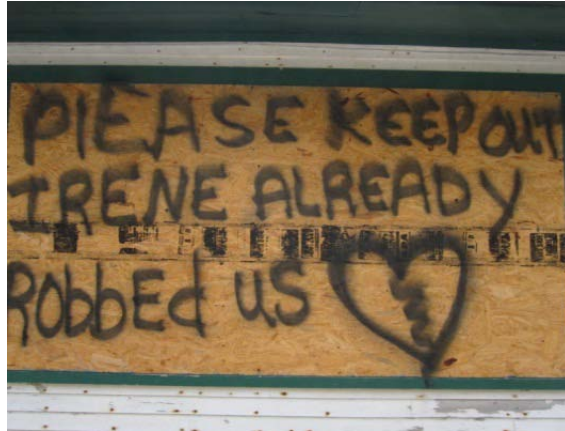 PlEASE KEEP OUT!
IRENE ALREADY
RobbEd uS